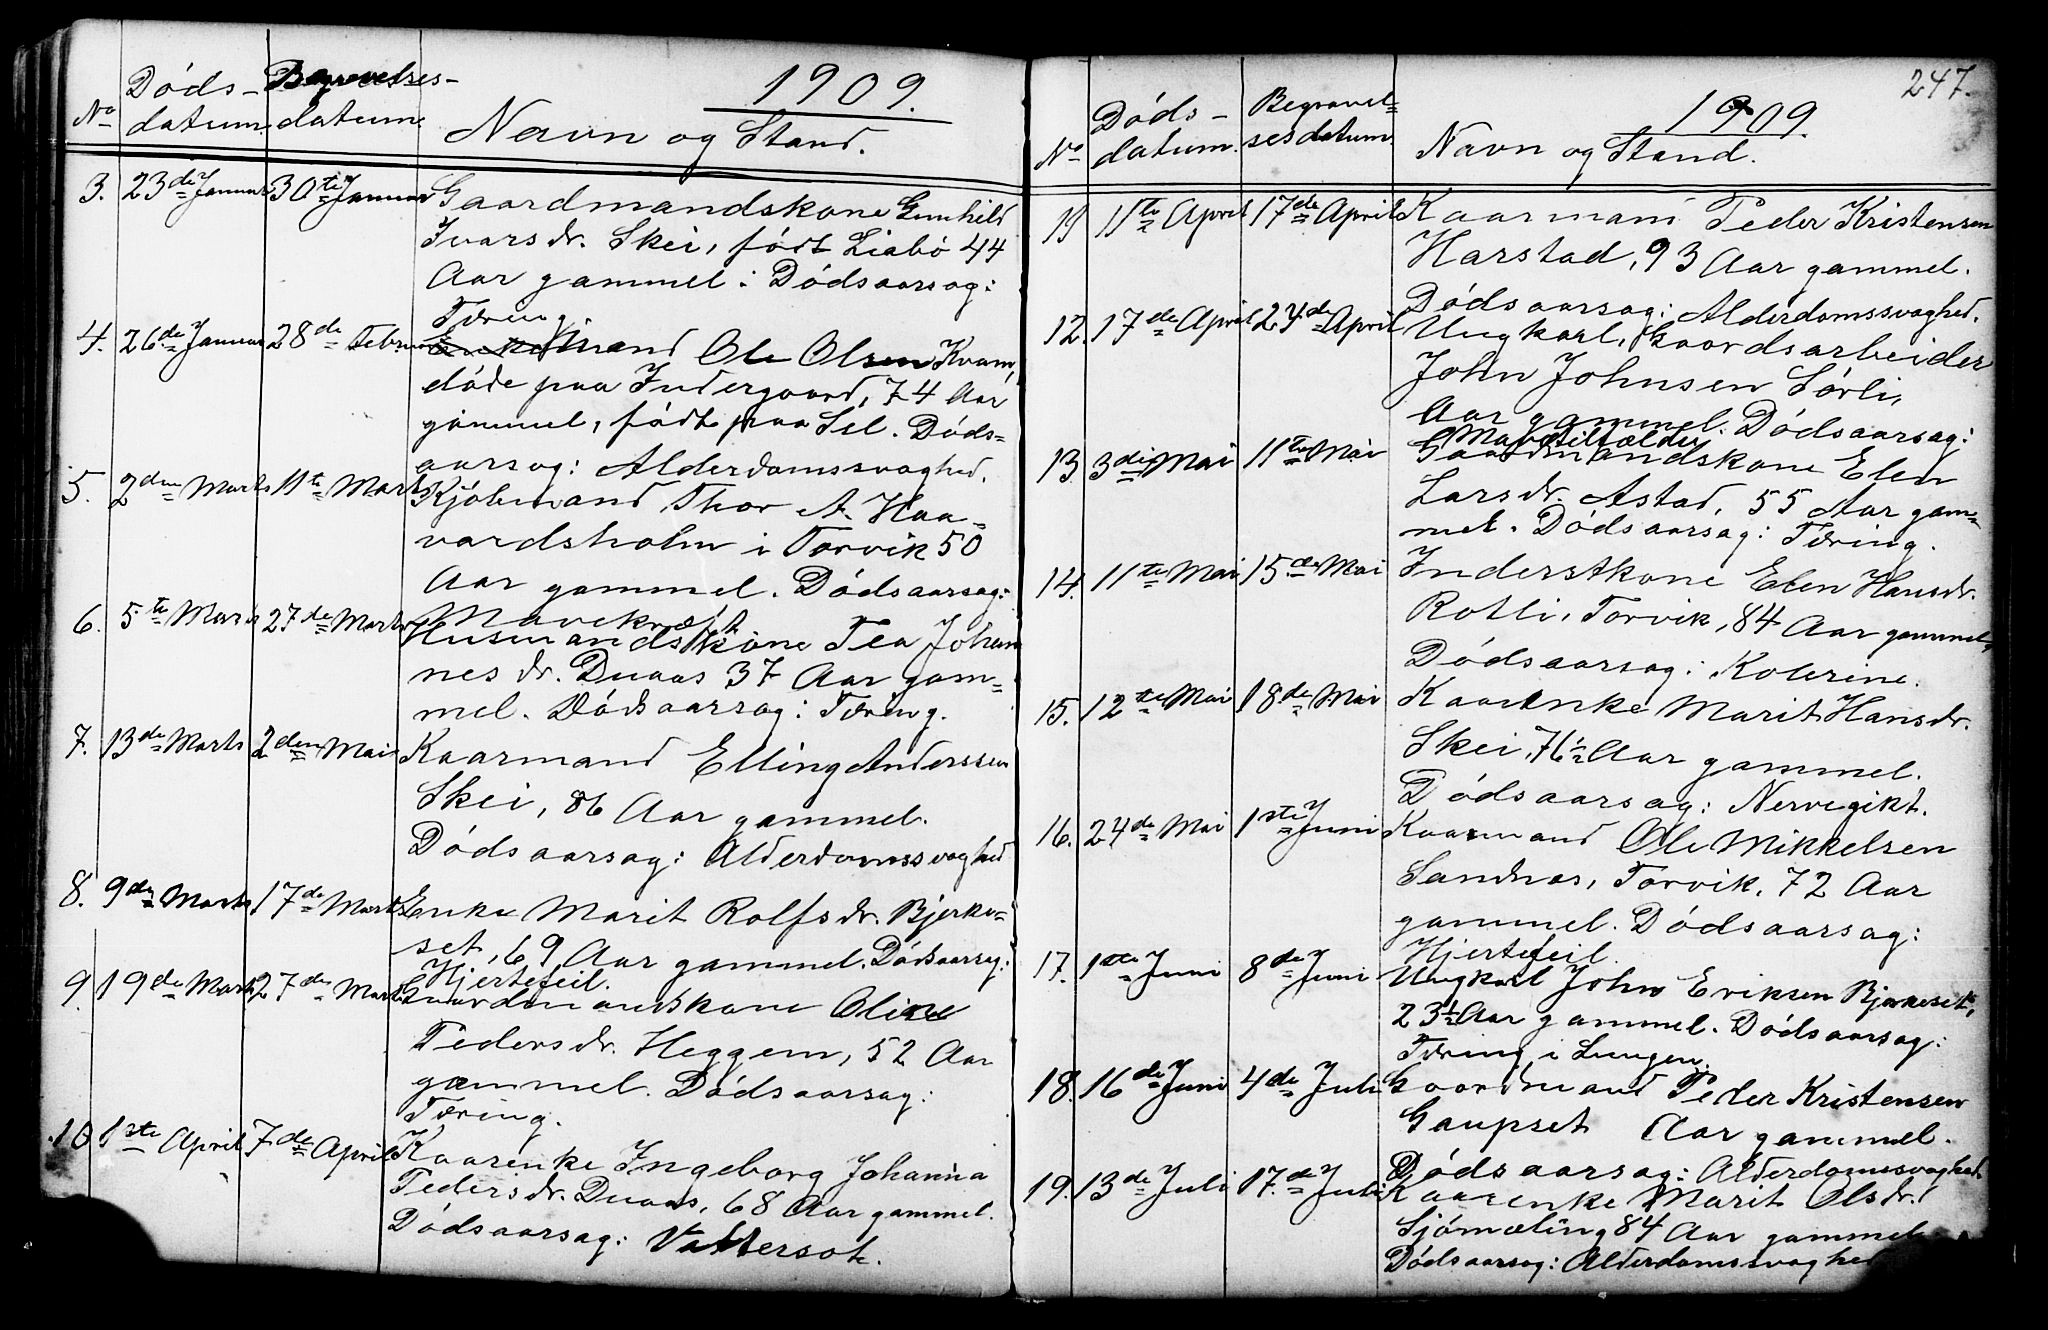 1909.
No Døds- datum. Begravelses- datum. Navn og Stand.
3. 23de Januar 30te Januar Gaardmandskone Gunhild
Ivarsdr. Skei, født Liabø 44
Aar gammel: Dødsaarsag:
Tæring.
4. 26de Januar 28de Februar Enkemand Ole Olsen Kvam,
døde paa Indergaard, 74 Aar
gammel, født paa Sel. Døds-
aarsag: Alderdomssvaghed.
5. 2den Marts 11te Marts Kjøbmand Thor A. Haa-
vardsholm i Torvik 50
Aar gammel. Dødsaarsag:
Mavekræft
6. 5te Marts 27de Marts Husmandskone Tea Johan
nesdr. Duaas 37 Aar gam-
mel. Dødsaarsag: Tæring.
7. 13de Marts 2den Mai Kaarmand Elling Anderssen
Skei, 86 Aar gammel.
Dødsaarsag: Alderdomssvaghed
8. 9de Marts 17de Marts Enke Marit Rolfsdr. Bjerke-
set, 69 Aar gammel. Dødsaarsag:
Hjertefeil.
9. 19de Marts 27de Marts Gaardmandskone Oline
Pedersdr. Heggem, 52 Aar
gammel. Dødsaarsag:
Tæring.
10. 1ste April 7de April Kaarenke Ingeborg Johanna
Pedersdr. Duaas, 68 Aar gammel.
Dødsaarsag: Vattersot.
247.
1909.
No Døds- datum. Begravel- sesdatum. Navn og Stand.
11 11te April 17de April Kaarmand Peder Kristensen
Harstad, 93 Aar gammel.
Dødsaarsag: Alderdomssvaghed.
12. 17de April 24de April Ungkarl, Gaardsarbeider
John Johnsen Sørli,
Aar gammel. Dødsaarsag:
Mavetilfælde.
13. 3die Mai 11te Mai Gaardmandskone Elen
Larsdr. Astad, 55 Aar gam-
mel. Dødsaarsag: Tæring.
14. 11te Mai 15de Mai Inderstkone Elen Hansdr.
Rotli, Torvik, 84 Aar gammel,
Dødsaarsag: Kolerine.
15. 12te Mai 18de Mai Kaarenke Marit Hansdr.
Skei, 76½ Aar gammel.
Dødsaarsag: Nervegikt.
16. 24de Mai 1ste Juni Kaarmand Ole Mikkelsen
Sandnes, Torvik, 72 Aar
gammel. Dødsaarsag:
Hjertefeil.
17. 1ste Juni 8de Juni Ungkarl John Eriksen Bjerkeset,
23½ Aar gammel. Dødsaarsag:
Tæring i Lungen.
18. 16de Juni 4de Juli Gaardmand Peder Kristensen
Gaupset Aar gammel.
Dødsaarsag: Alderdomssvaghed.
19. 13de Juli 17de Juli Kaarenke Marit Olsdr.
Sjømæling 84 Aar gammel
Dødsaarsag: Alderdomssvaghed